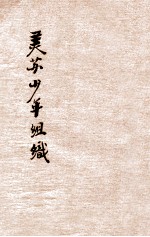 美苏少年组織